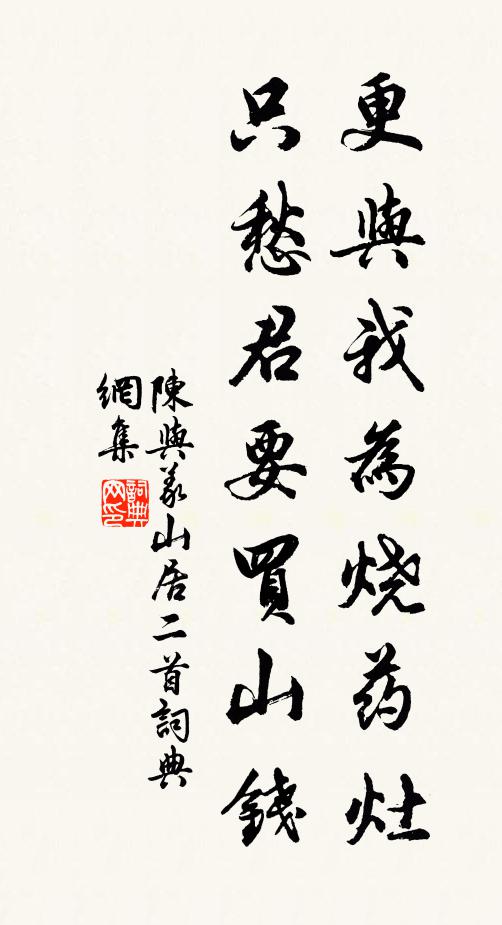 更與我為烧药灶
只愁君要買山錢
陳與義山居二首詞典
網集
詞典
网印